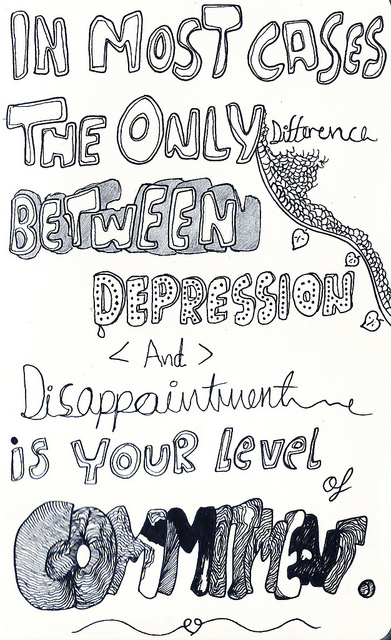 IN MOST CASES
THE ONLY Difference
BETWEEN
DEPRESSION
< And >
Disappointment
is YOUR LeveL
of
COMMITMENT.